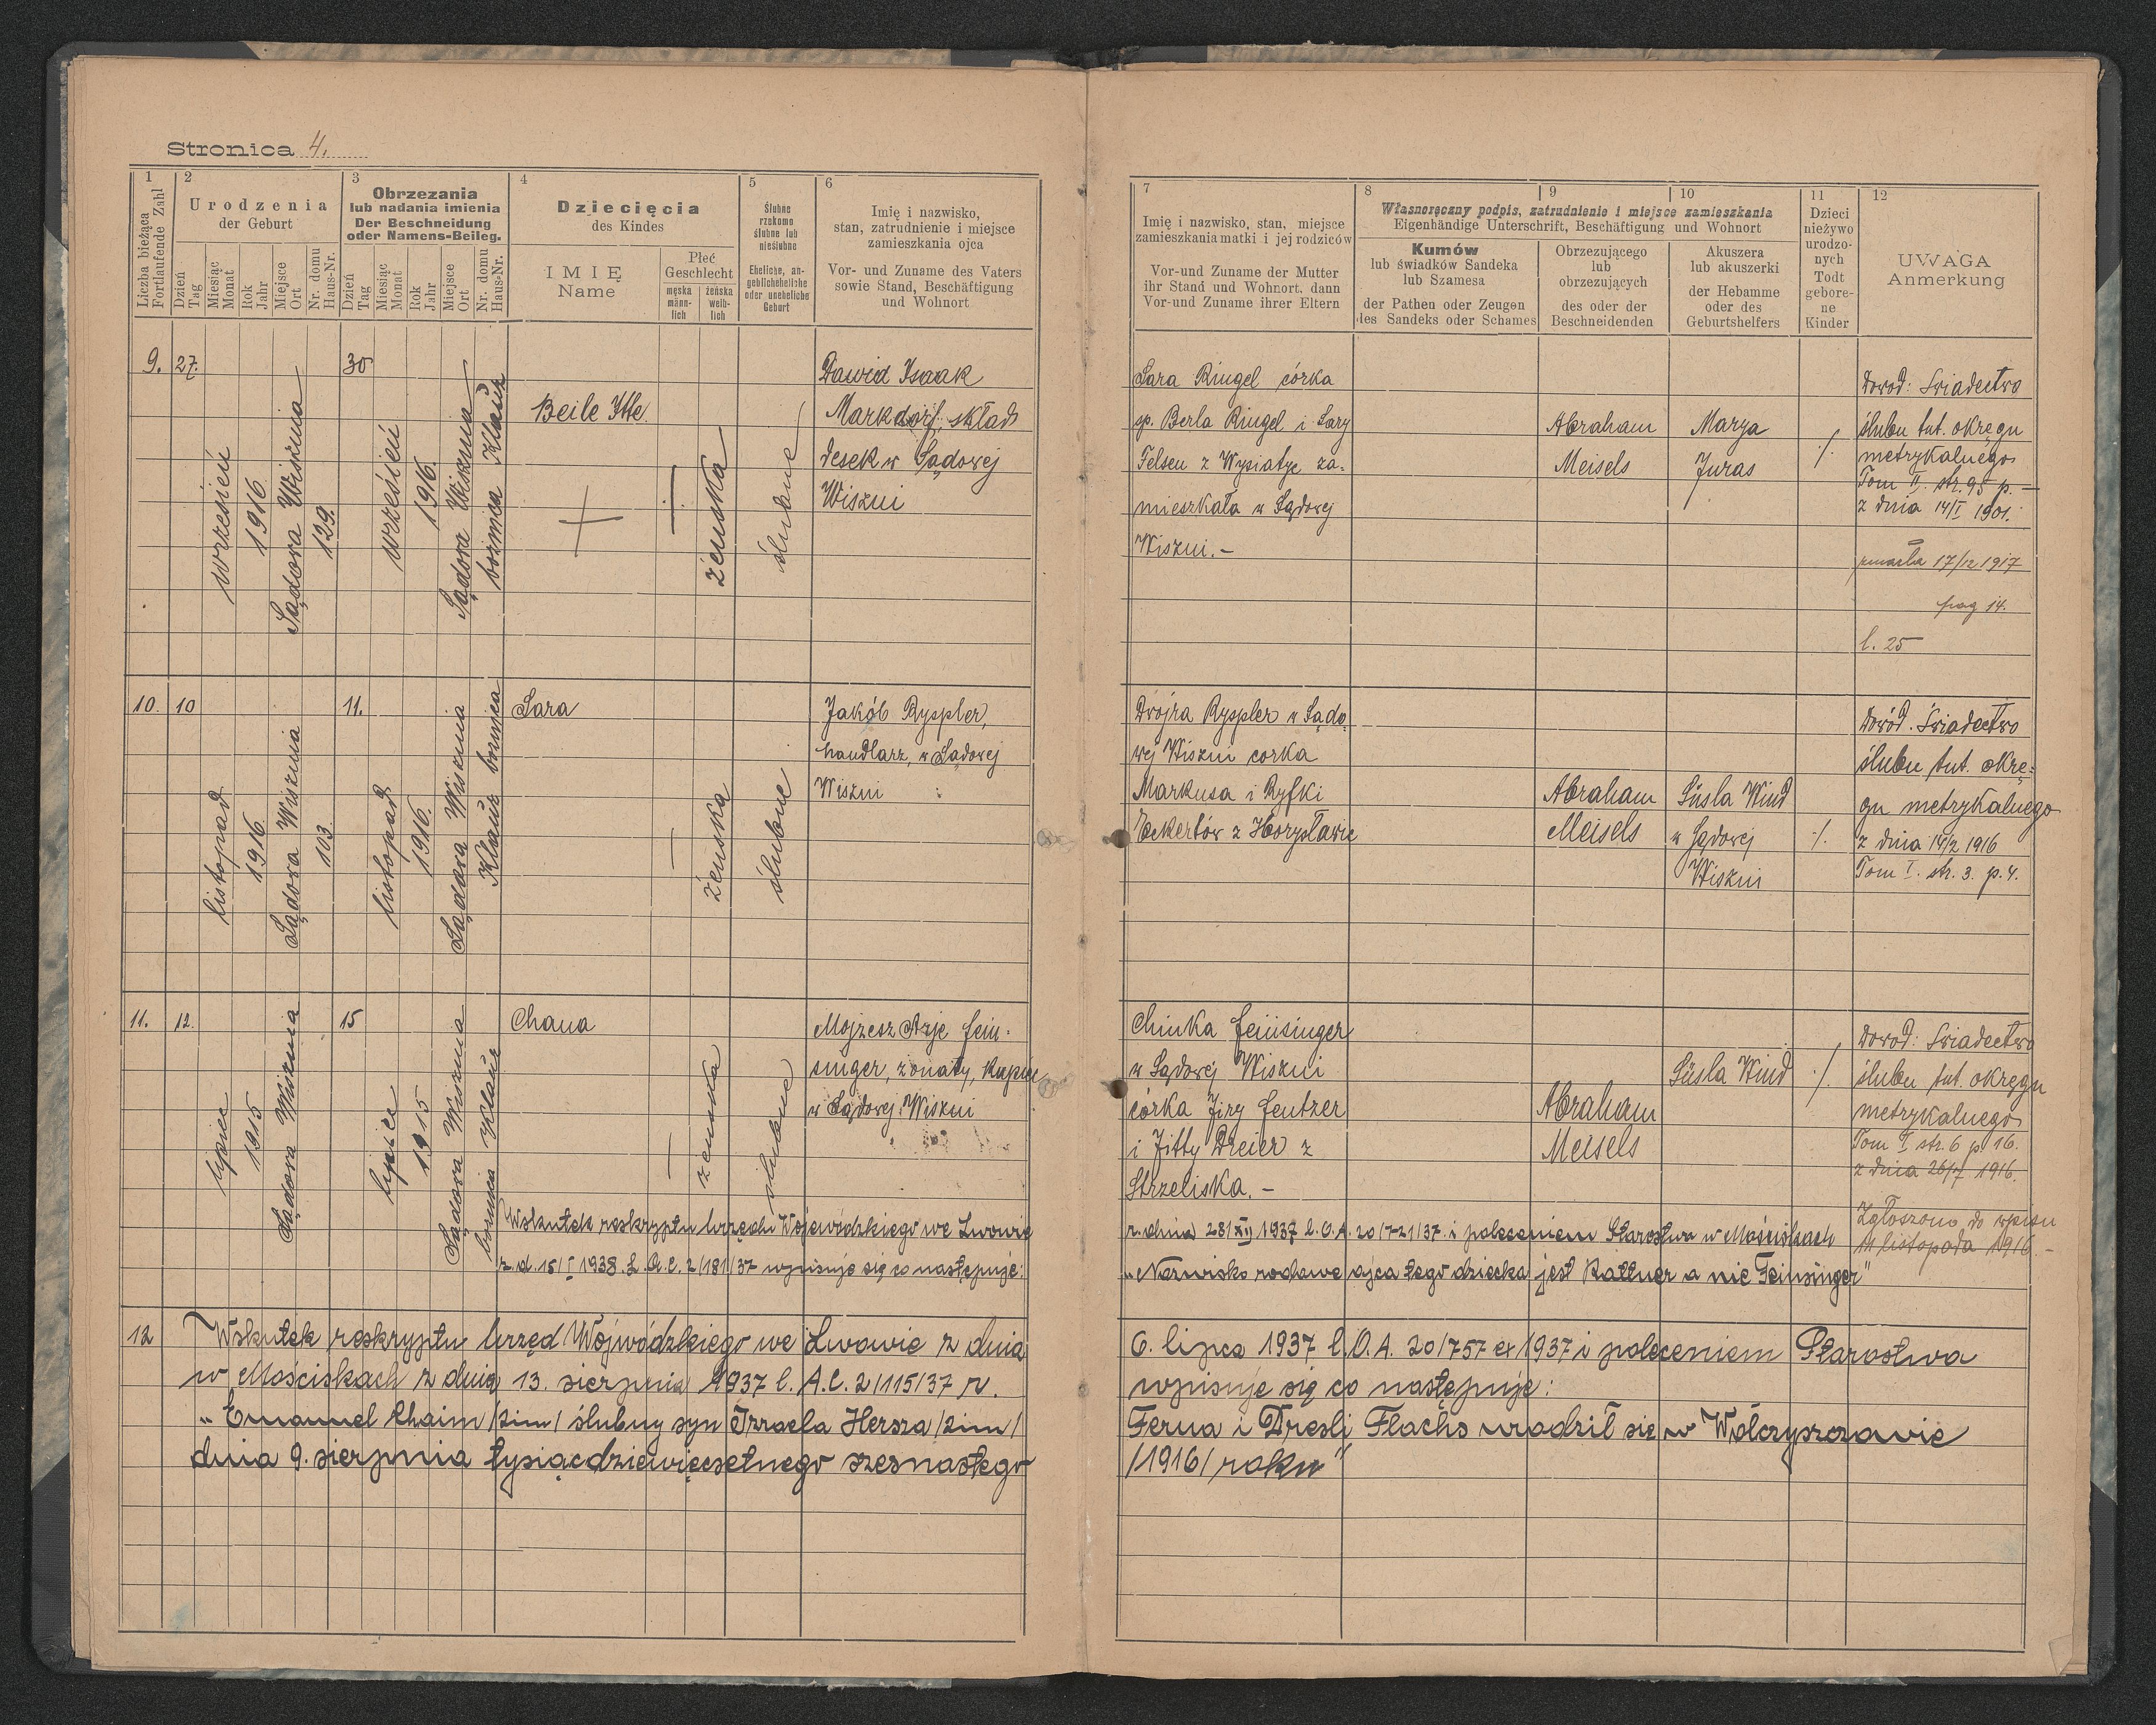 Stronica 4.
1 2 3 4 5 6
Liczba bieżąca
Fortlaufende Zahl
Urodzenia
der Geburt
Dzień
Tag
Miesiąc
Monat
Rok
Jahr
Miejsce
Ort
Nr. domu
Haus-Nr.
Obrzezania
lub nadania imienia
Der Beschneidung
oder Namens-Beileg.
Dzień
Tag
Miesiąc
Monat
Rok
Jahr
Miejsce
Ort
Nr. domu
Haus-Nr.
Dziecięcia
des Kindes
IMIĘ
Name
Płeć
Geschlecht
męska
männ-
lich
żeńska
weib-
lich
Ślubne
rzekomo
ślubne lub
nieślubne
Eheliche, an-
geblicheheliche
oder uneheliche
Geburt
Imię i nazwisko,
stan, zatrudnienie i miejsce
zamieszkania ojca
Vor- und Zuname des Vaters
sowie Stand, Beschäftigung
und Wohnort
7 8 9 10 11 12
Imię i nazwisko, stan, miejsce
zamieszkania matki i jej rodziców
Vor-und Zuname der Mutter
ihr Stand und Wohnort, dann
Vor-und Zuname ihrer Eltern
Własnoręczny podpis, zatrudnienie i miejsce zamieszkania
Eigenhändige Unterschrift, Beschäftigung und Wohnort
Kumów
lub świadków Sandeka
lub Szamesa
der Pathen oder Zeugen
des Sandeks oder Schames
Obrzezującego
lub
obrzezujących
des oder der
Beschneidenden
Akuszera
lub akuszerki
der Hebamme
oder des
Geburtshelfers
Dzieci
nieżywo
urodzo-
nych
Todt
gebore-
ne
Kinder
UWAGA
Anmerkung
9.
27.
wrzesień
1916
Sądowa Wisznia
129.
30
wrzesień
1916.
Sądowa Wisznia
bożnica Klaus
Beile Itte
żeńska
ślubne
Dawid Isaak
Markdorf, skład
desek w Sądowej
Wiszni
Sara Ringel córka
sp. Berla Ringel i Sary
Felsen z Wysiatyc za-
mieszkała w Sądowej
Wiszni.-
Abraham
Meisels
Marya
Juras
./.
Dowod: Swiadectwo
ślubu tut. okręgu
metrykalnego
Tom II. str. 95 p. -
z dnia 14/I 1901.
zmarła 17/12 1917
pag 14.
l. 25
10.
10
listopad
1916.
Sądowa Wisznia
103.
11.
listopad
1916.
Sądowa Wisznia
Klaus bożnica
Sara
żeńska
ślubne
Jakób Ryspler,
handlarz, w Sądowej
Wiszni
Dwojra Ryspler w Sądo-
wej Wiszni corka
Markusa i Ryfki
Eckertów z Horysławic
Abraham
Meisels
Süsla Wind
w Sądowej
Wiszni
./.
Dowód. Świadectwo
ślubu tut. okrę-
gu metrykalnego
z dnia 14/2 1916
Tom I. str. 3. p. 4.
11.
12.
lipiec
1915
Sądowa Wisznia
15
lipiec
1915
Sądowa Wisznia
bożnica Klaus
Chana
żeńska
ślubne
Mojżesz Arje Fein-
singer, żonaty, kupiec
w Sądowej Wiszni
Chinka Feinsinger
w Sądowej Wiszni
córka Jiry Fentzer
i Jitty Dreier z
Strzeliska.-
Abraham
Meisels
Süsla Wind
./.
Dowod: Swiadectwo
ślubu tut. okręgu
metrykalnego
Tom I str. 6 p 16.
z dnia 26/7 1916.
Zgłoszono do wpisu
11 listopada 1916.-
Wskutek reskryptu Urzędu Wojewódzkiego we Lwowie z dnia 28/XII 1937 l. O.A. 20/721/37. i poleceniem Starostwa w Mościskach
z d. 15/I 1938. L. A.C. 2/181/37 wpisuje się co następuje: „Nazwisko rodowe ojca tego dziecka jest Kattner a nie Feinsinger"
12
Wskutek reskryptu Urzęd Wojwódzkiego we Lwowie z dnia 6. lipca 1937 l. O.A. 20/757 ex 1937 i poleceniem Starostwa
w Mościskach z dnia 13. sierpnia 1937 l. A.C. 2/115/37 r. wpisuje się co następuje:
„Emanuel Chaim /2 im/ ślubny syn Izraela Hersza /2im/ Ferua i Dresli Flachs urodził się w Wołczyszczowie
dnia 9. sierpnia tysiącdziewięćsetnego szesnastego /1916/ roku"